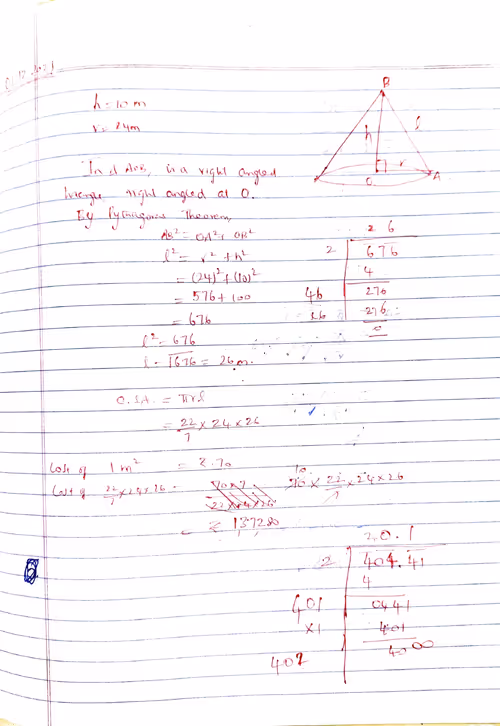 h = 10 m
r = 24m
B
h
l
r
O
A
In Δ AOB, is a right angled
triangle right angled at O.
By Pythagoras Theorem,
AB² = OA² + OB²
l² = r² + h²
= (24)² + (10)²
= 576 + 100
= 676
l² = 676
l = √676 = 26m.
2 6
2 676
4
46 276
276
0
C.S.A. = πrl
= 22/7 × 24 × 26
Cost of 1 m² = ₹.70
Cost of 22/7 × 24 × 26 = 70 × 22/7 × 24 × 26
10
= ₹ 137280
20.1
2 404.41
4
401 0441
×1 401
402 4000